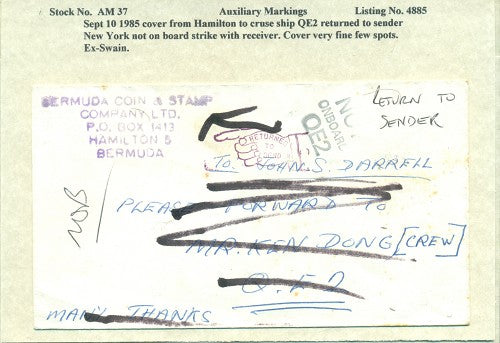 Stock No. AM 37 Auxiliary Markings Listing No. 4885
Sept 10 1985 cover from Hamilton to cruse ship QE2 returned to sender
New York not on board strike with receiver. Cover very fine few spots.
Ex-Swain.
BERMUDA COIN & STAMP
COMPANY LTD.
P.O. BOX 1413
HAMILTON 5
BERMUDA
RETURNED
TO
NOT
ONBOARD
QE2
RETURN TO
SENDER
TO JOHN S DARRELL
NOB
PLEASE FORWARD TO
MR. KEN DONG [CREW]
Q.E.2
MANY THANKS